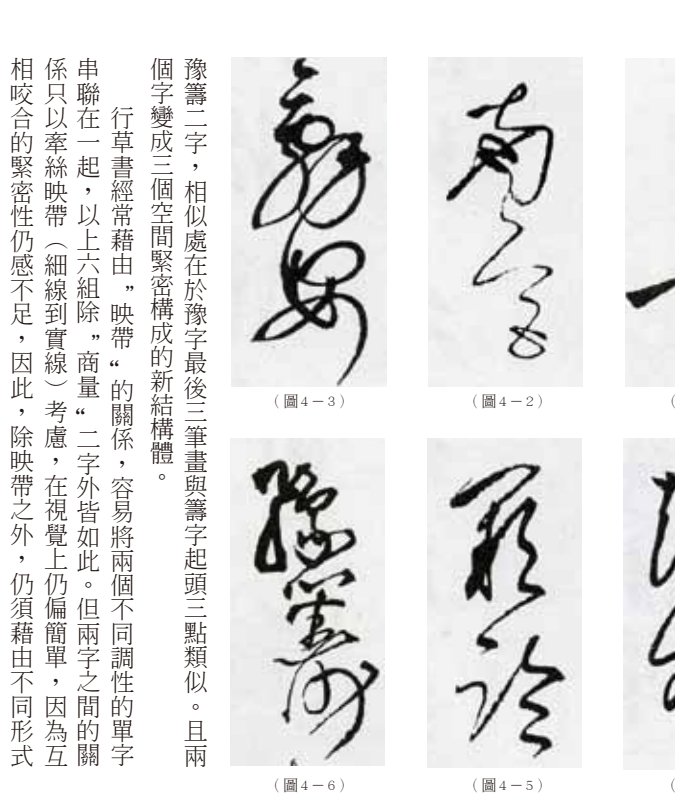 （圖4－3）
（圖4－2）
（
豫籌
（圖4－6）
（圖4－5）
（
豫籌二字，相似處在於豫字最後三筆畫與籌字起頭三點類似。且兩
個字變成三個空間緊密構成的新結構體。
行草書經常藉由”映帶“的關係，容易將兩個不同調性的單字
串聯在一起，以上六組除”商量“二字外皆如此。但兩字之間的關
係只以牽絲映帶（細線到實線）考慮，在視覺上仍偏簡單，因為互
相咬合的緊密性仍感不足，因此，除映帶之外，仍須藉由不同形式